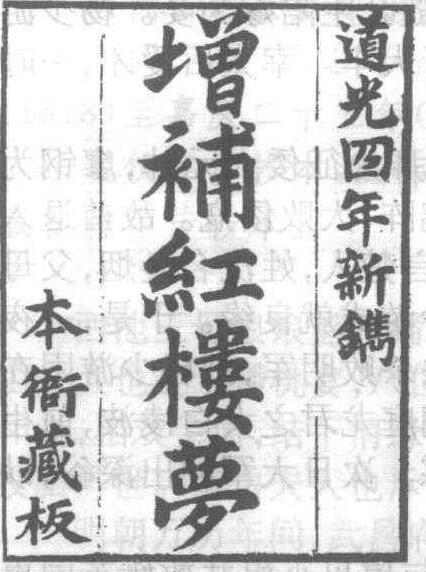 道光四年新鐫
增補紅樓夢
本衙藏板